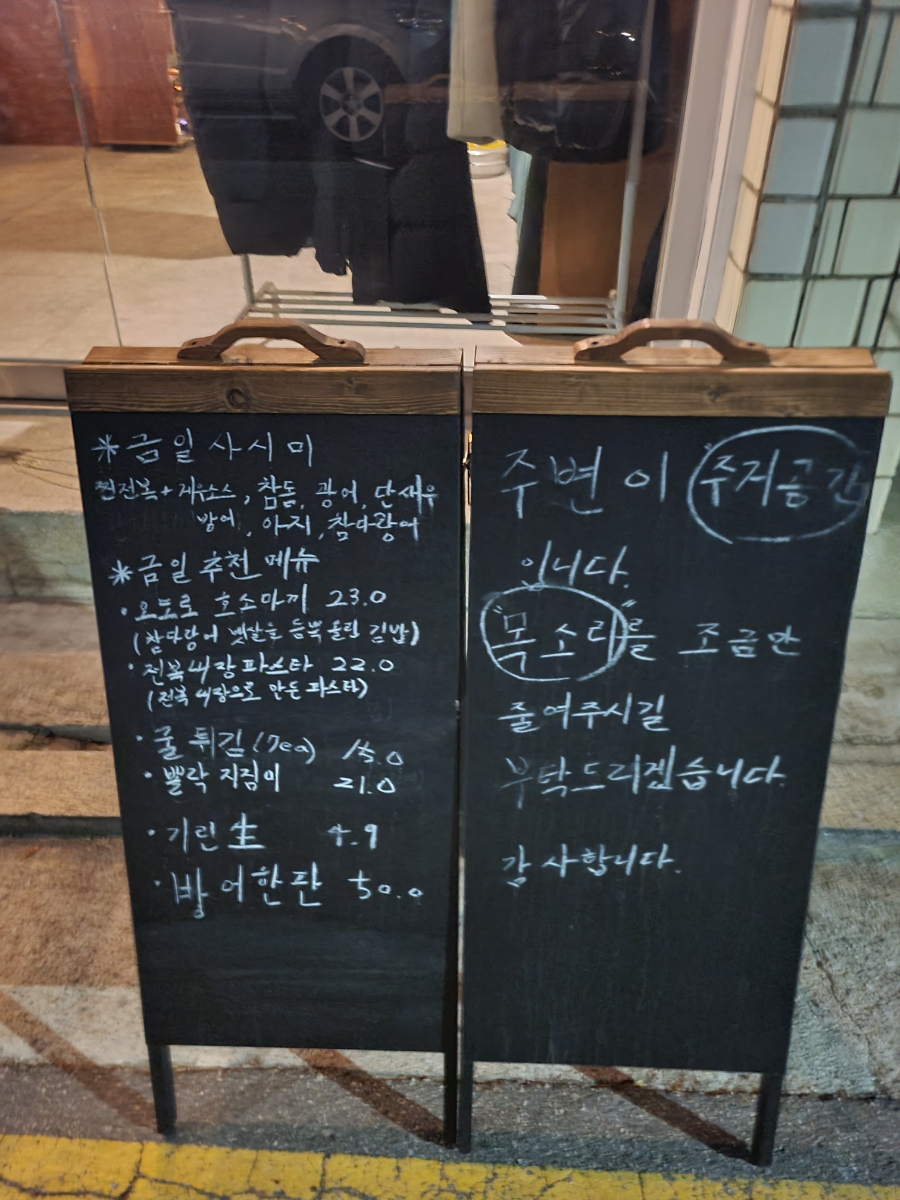 *금일 사시미
찐전복+게우소스, 참돔, 광어, 단새우
방어, 아지, 참다랑어
*금일 추천 메뉴
·오도로 호소마끼 23.0
(참다랑어 뱃살을 듬뿍 올린 김밥)
·전복내장파스타 22.0
(전복 내장으로 만든 파스타)
·굴튀김(7ea) 15.0
·뽈락 지짐이 21.0
·기린生 4.9
·방어한판 50.0
주변이 "주거공간"
입니다.
"목소리"를 조금만
줄여주시길
부탁드리겠습니다.
감사합니다.